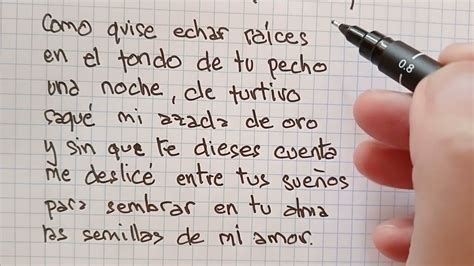 Como quise echar raíces
en el fondo de tu pecho
una noche, de furtivo
saqué mi azada de oro
y sin que te dieses cuenta
me deslicé entre tus sueños
para sembrar en tu alma
las semillas de mi amor.
0.8